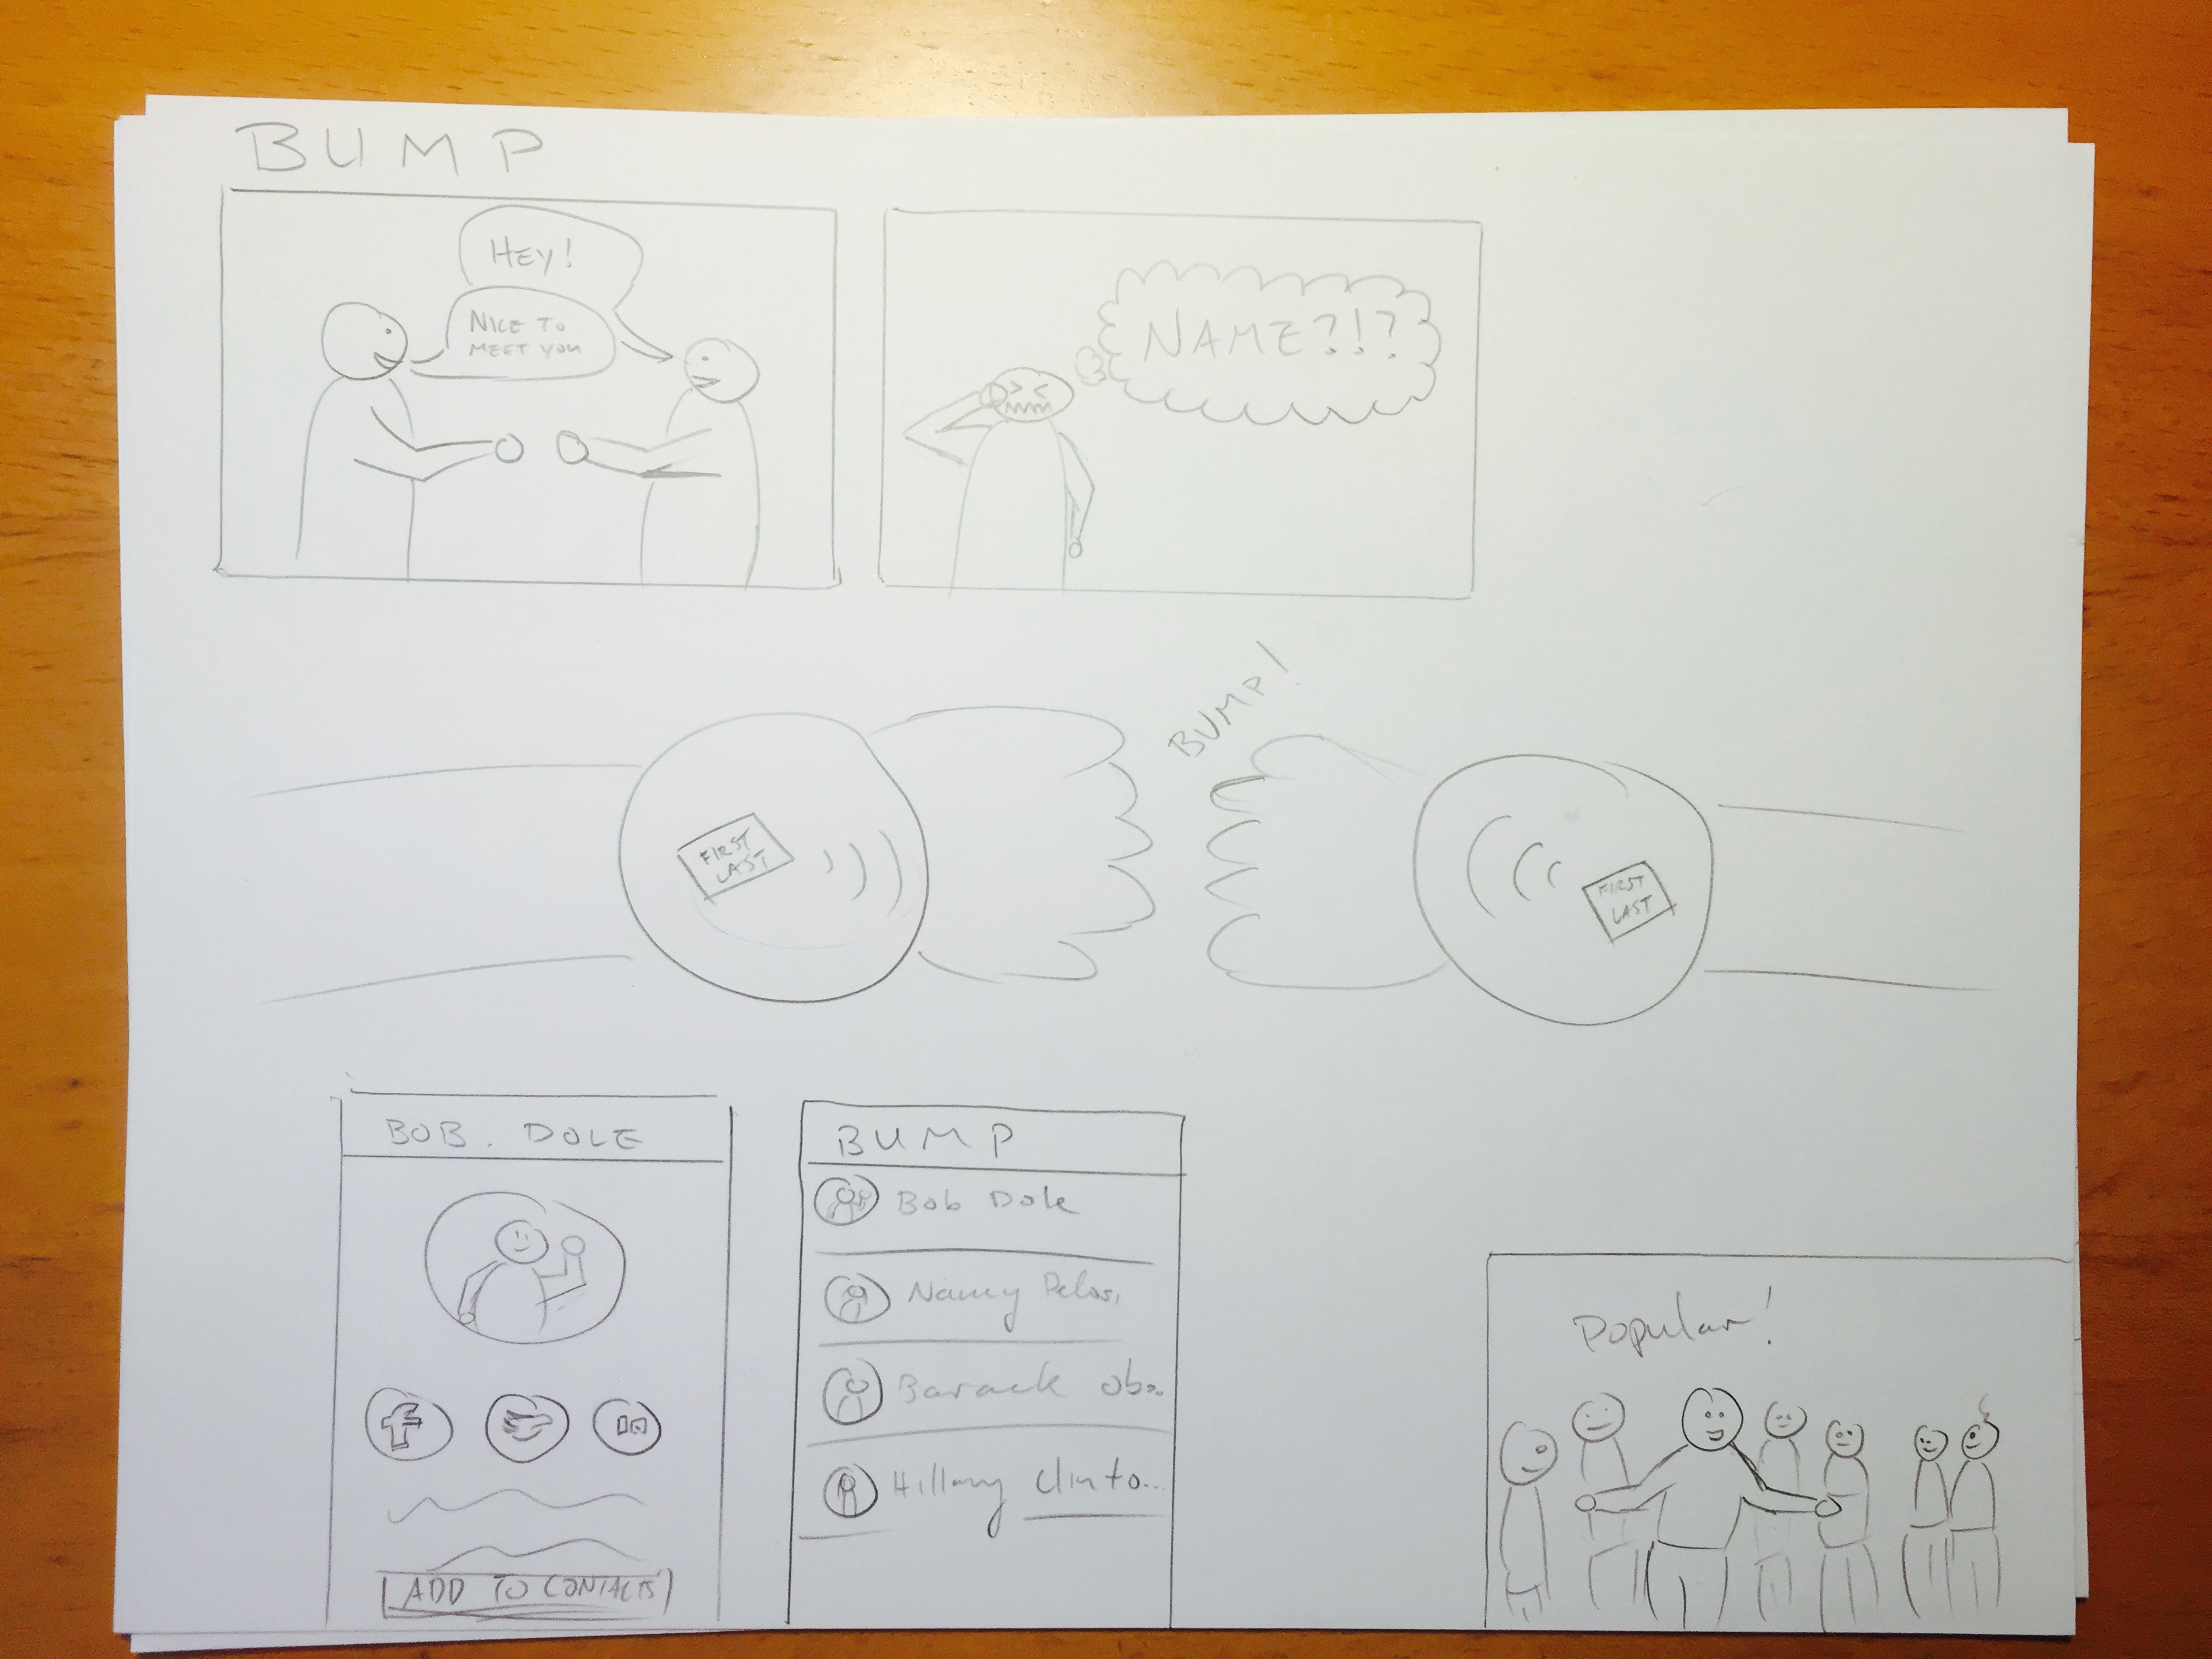 BUMP
HEY!
NICE TO
MEET YOU
NAME?!?
BUMP!
FIRST
LAST
FIRST
LAST
BOB. DOLE
f
in
ADD TO CONTACTS
BUMP
Bob Dole
Nancy Pelosi
Barack Oba..
Hillary Clinto...
Popular!